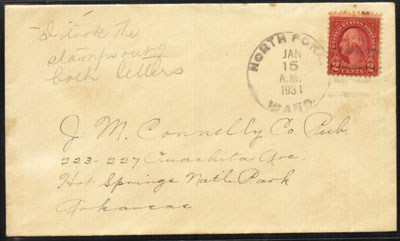 I took the
stamps out of
both letters
NORTH FORK
JAN
15
A.M.
1931
IDAHO.
UNITED STATES POSTAGE
2 CENTS 2
J. M. Connelly Co. Pub.
223-227 Ouachita Ave.
Hot Springs Nat'l Park
Arkansas